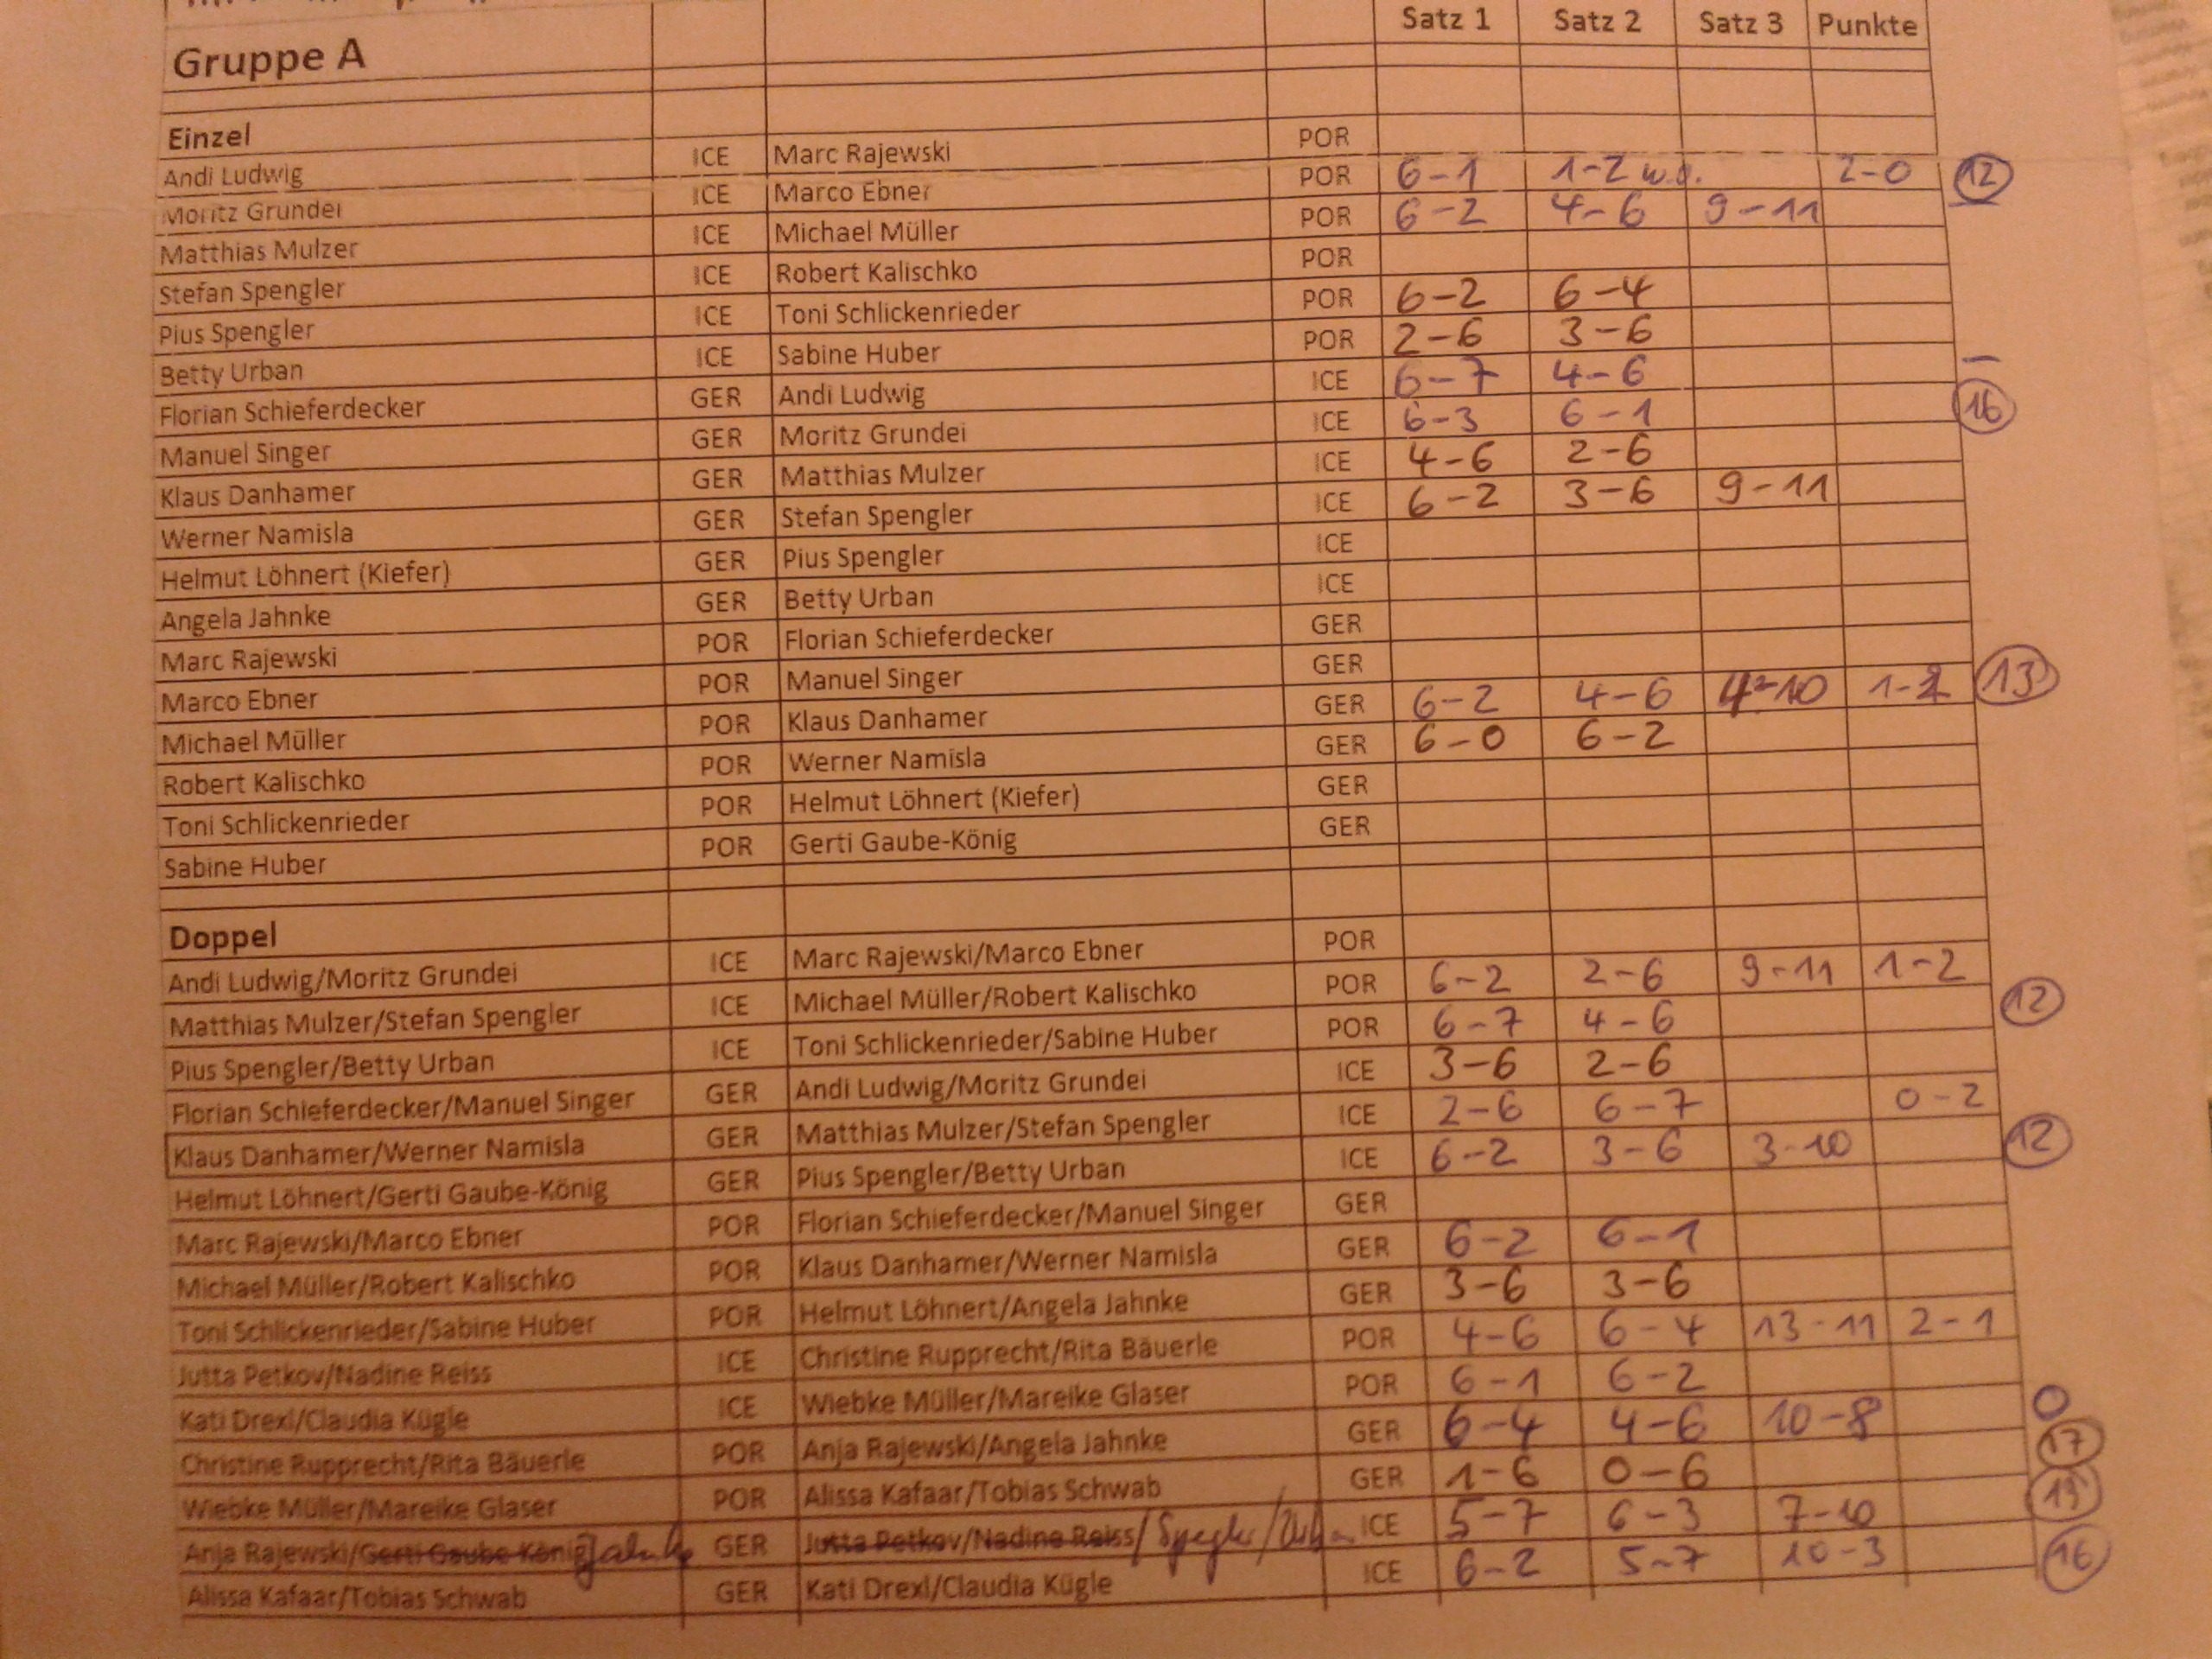 Gruppe A Satz 1 Satz 2 Satz 3 Punkte
Einzel
Andi Ludwig ICE Marc Rajewski POR
Moritz Grundei ICE Marco Ebner POR 6-1 1-2 w.o. 2-0 12
Matthias Mulzer ICE Michael Müller POR 6-2 4-6 9-11
Stefan Spengler ICE Robert Kalischko POR
Pius Spengler ICE Toni Schlickenrieder POR 6-2 6-4
Betty Urban ICE Sabine Huber POR 2-6 3-6
Florian Schieferdecker GER Andi Ludwig ICE 6-7 4-6
Manuel Singer GER Moritz Grundei ICE 6-3 6-1 16
Klaus Danhamer GER Matthias Mulzer ICE 4-6 2-6
Werner Namisla GER Stefan Spengler ICE 6-2 3-6 9-11
Helmut Löhnert (Kiefer) GER Pius Spengler ICE
Angela Jahnke GER Betty Urban ICE
Marc Rajewski POR Florian Schieferdecker GER
Marco Ebner POR Manuel Singer GER
Michael Müller POR Klaus Danhamer GER 6-2 4-6 4-10 1-2 13
Robert Kalischko POR Werner Namisla GER 6-0 6-2
Toni Schlickenrieder POR Helmut Löhnert (Kiefer) GER
Sabine Huber POR Gerti Gaube-König GER
Doppel
Andi Ludwig/Moritz Grundei ICE Marc Rajewski/Marco Ebner POR
Matthias Mulzer/Stefan Spengler ICE Michael Müller/Robert Kalischko POR 6-2 2-6 9-11 1-2 12
Pius Spengler/Betty Urban ICE Toni Schlickenrieder/Sabine Huber POR 6-7 4-6
Florian Schieferdecker/Manuel Singer GER Andi Ludwig/Moritz Grundei ICE 3-6 2-6
Klaus Danhamer/Werner Namisla GER Matthias Mulzer/Stefan Spengler ICE 2-6 6-7 0-2 12
Helmut Löhnert/Gerti Gaube-König GER Pius Spengler/Betty Urban ICE 6-2 3-6 3-10
Marc Rajewski/Marco Ebner POR Florian Schieferdecker/Manuel Singer GER
Michael Müller/Robert Kalischko POR Klaus Danhamer/Werner Namisla GER 6-2 6-1
Toni Schlickenrieder/Sabine Huber POR Helmut Löhnert/Angela Jahnke GER 3-6 3-6
Jutta Petkov/Nadine Reiss ICE Christine Rupprecht/Rita Bäuerle POR 4-6 6-4 13-11 2-1
Kati Drexl/Claudia Kügle ICE Wiebke Müller/Mareike Glaser POR 6-1 6-2
Christine Rupprecht/Rita Bäuerle POR Anja Rajewski/Angela Jahnke GER 6-4 4-6 10-8 0
Wiebke Müller/Mareike Glaser POR Alissa Kafaar/Tobias Schwab GER 1-6 0-6 17
Anja Rajewski/Gerti Gaube-König Jahnke GER Jutta Petkov/Nadine Reiss/Spengler/Urban ICE 5-7 6-3 7-10
Alissa Kafaar/Tobias Schwab GER Kati Drexl/Claudia Kügle ICE 6-2 5-7 10-3 16